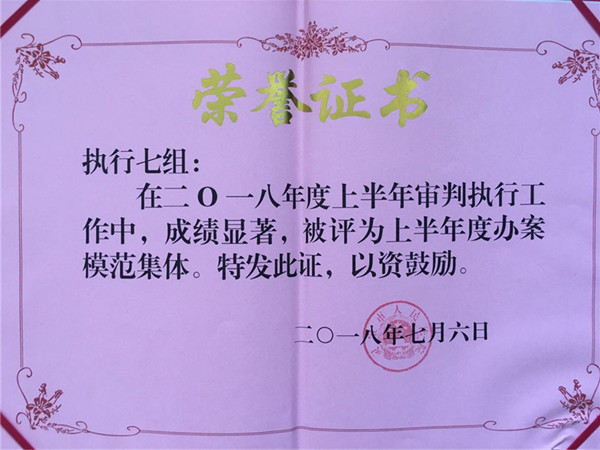 荣誉证书
执行七组：
在二O一八年度上半年审判执行工
作中，成绩显著，被评为上半年度办案
模范集体。特发此证，以资鼓励。
二〇一八年七月六日